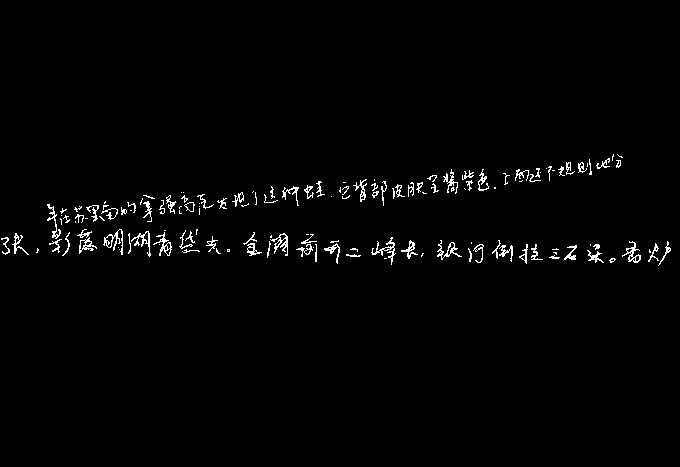 年在苏里南的拿骚高原发现了这种蛙，它背部皮肤呈酱紫色，上面还不规则地分
张，影落明湖青黛光。金阙前开二峰长，银河倒挂三石梁。香炉